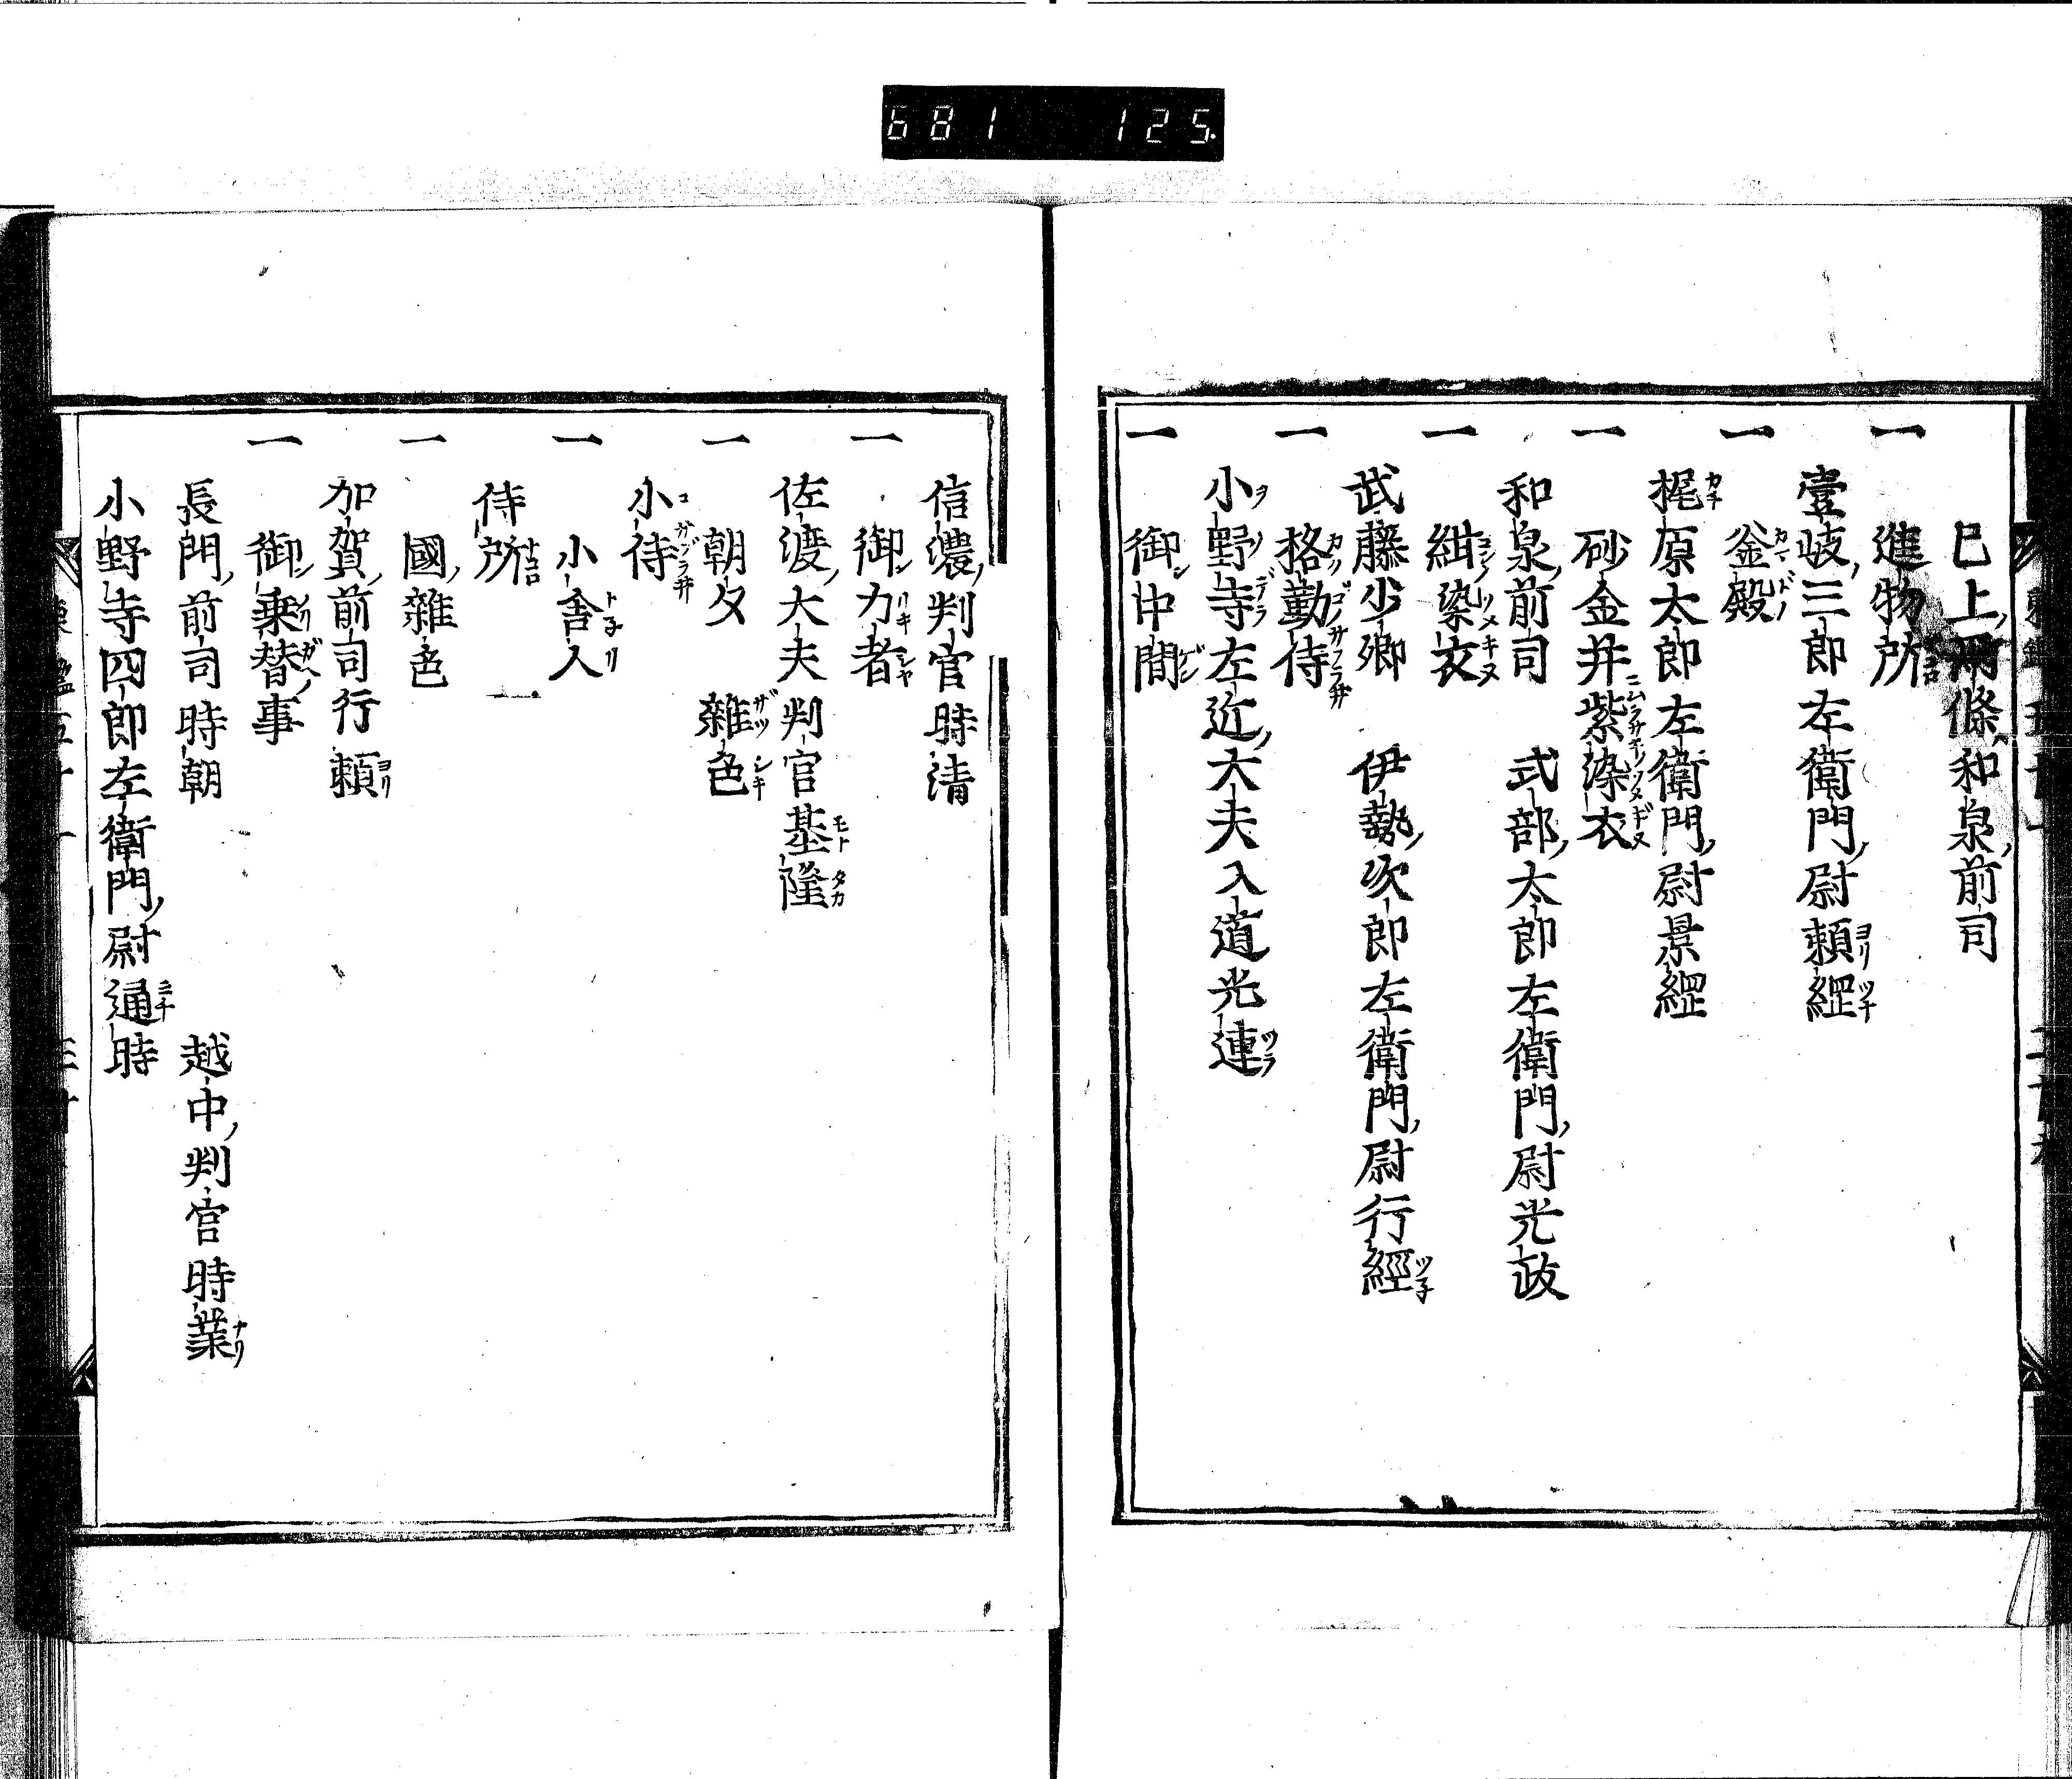 681 125
已上兩條和泉前司
一 進物所
壹岐三郎左衛門尉頼經
一 釜殿
梶原太郎左衛門尉景經
一 砂金并紫染衣
和泉前司 式部太郎左衛門尉光政
一 紺染衣
武藤少卿 伊勢次郎左衛門尉行經
一 格勤侍
小野寺左近大夫入道光連
一 御中間
信濃判官時清
一 御力者
佐渡大夫判官基隆
一 朝夕 雜色
小侍
一 小舎人
侍所
一 國雜色
加賀前司行頼
一 御乗替事
長門前司時朝 越中判官時業
小野寺四郎左衛門尉通時